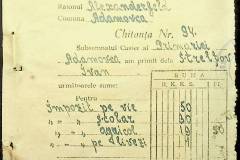 Raionul Alexanderfeld
Comuna Adamovca
Chitanța Nr. 94.
Subsemnatul Casier al Primăriei
Adamovca am primit dela Streltov
Ivan
SUMA
R.K.K.S.
urmitoarele sume:
Pentru
Impozit pe vie 50
" " stolar 30
" " agricol 19 50
" pe divezi 1